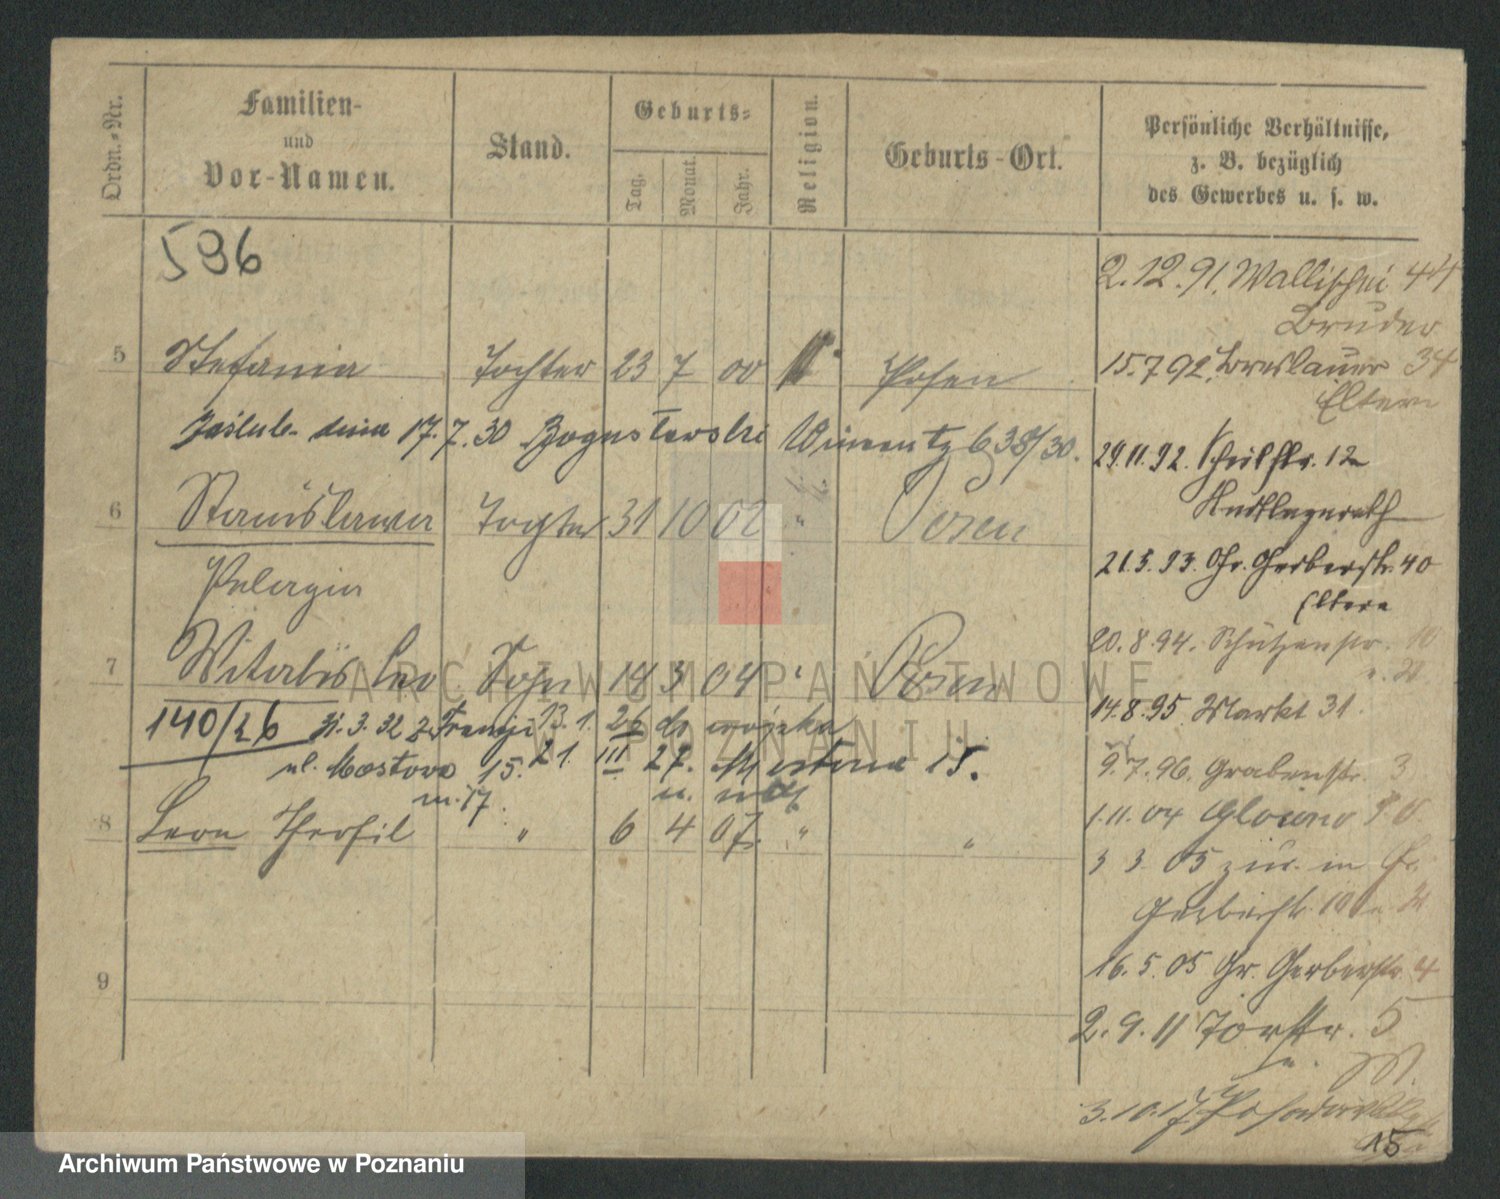 Ordn.-Nr.
Familien-
und
Vor-Namen.
Stand.
Geburts-
Tag.
Monat.
Jahr.
Religion.
Geburts-Ort.
Persönliche Verhältnisse,
z. B. bezüglich
des Gewerbes u. s. w.
596
5 Stefania Tochter 23 7 00 Posen
17.7.30 Bogusławski 638/30.
6 Stanislawa Tochter 31 10 02 " Posen
Pelagia
7 Witalis Leo Sohn 3 04 " Posen
140/26 31.3.32 z Francji 13.1. 26 do wojska
ul. Mostowa 15. 21. III 27. 15.
m. 17.
8 Leon Theofil " 6 4 07. " "
9
2.12.91. Wallischei 44
Bruder
15.7.92. Breslauer 34
Eltern
29.11.92. 12
21.3.93. Gr. Gerberstr. 40
Eltern
20.8.94. Schützenstr. 10
14.8.95. Markt 31.
9.7.96. Grabenstr. 3
1.11.04 Glowno
3 3. 05 zur. in Gr.
Gerberstr. 10
16.5.05 Gr. Gerberstr. 4
2.9.11 Torstr. 5
3.10.17
15
ARCHIWUM PAŃSTWOWE
W POZNANIU
Archiwum Państwowe w Poznaniu